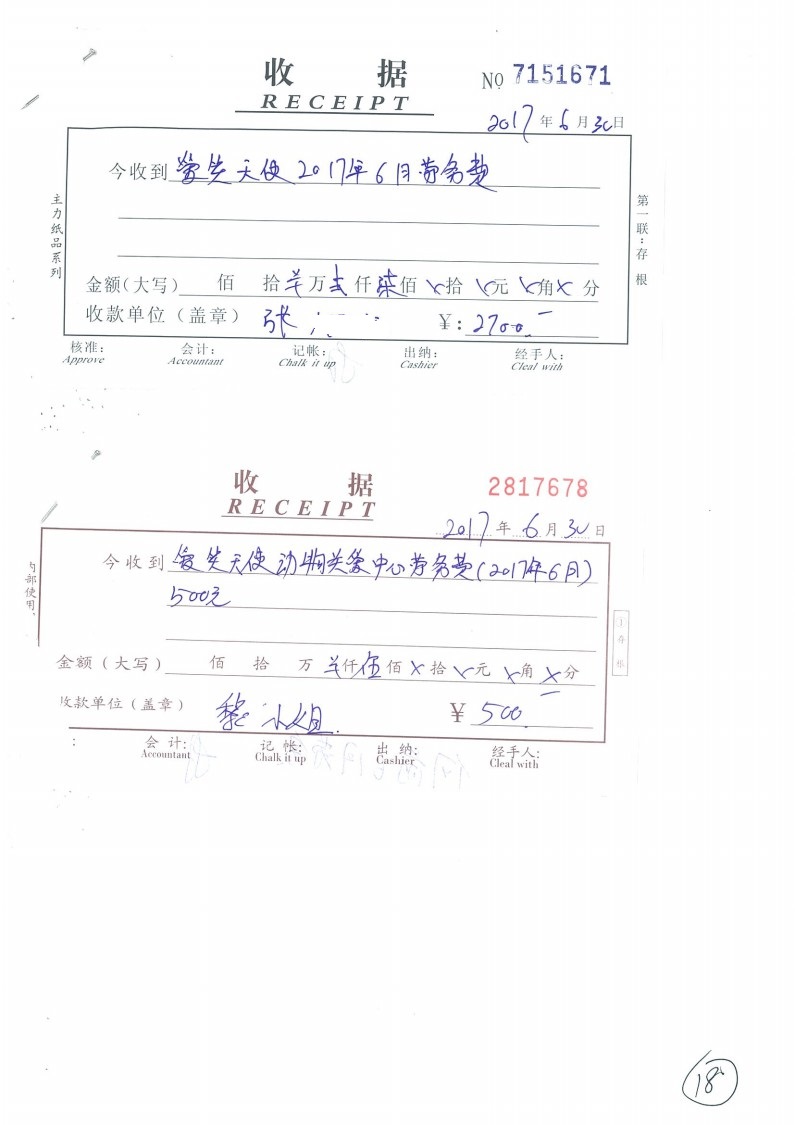 收 据 No 7151671
RECEIPT
2017年6月30日
今收到 爱笑天使2017年6月劳务费
主力纸品系列
第一联:存根
金额(大写) 佰 拾 羊万 贰仟 柒佰 ×拾 ×元 ×角 × 分
收款单位(盖章) 张 ¥: 2700.—
核准: 会计: 记帐: 出纳: 经手人:
Approve Accountant Chalk it up Cashier Cleal with
收 据 2817678
RECEIPT
2017年6月30日
今收到 爱笑天使动物关爱中心劳务费(2017年6月)
500元
内部使用
①存根
金额(大写) 佰 拾 万 羊仟 伍佰 ×拾 ×元 ×角 ×分
收款单位(盖章) 黎小姐 ¥ 500.—
: 会计: 记帐: 出纳: 经手人:
Accountant Chalk it up Cashier Cleal with
18